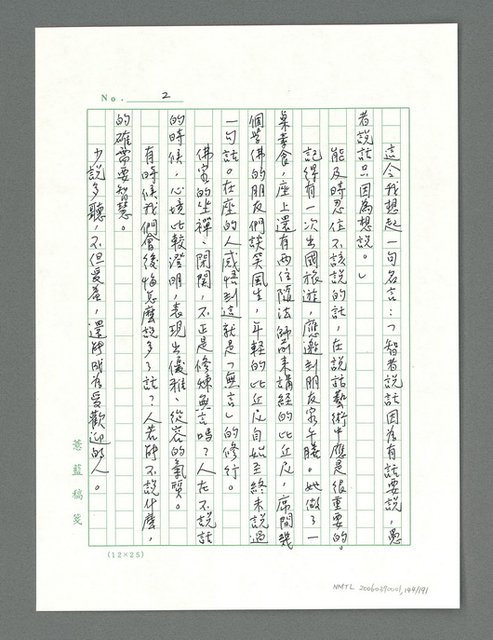 No. 2
這令我想起一句名言:「智者說話因為有話要說,愚
者說話只因為想說。」
能及時忍住不該說的話,在說話藝術中應是很重要的。
記得有一次出國旅遊,應邀到朋友家午膳。她做了一
桌素食,座上還有兩位隨法師前來講經的比丘尼,席間幾
個學佛的朋友們談笑風生,年輕的比丘尼自始至終未說過
一句話。在座的人感悟到這就是「無言」的修行。
佛家的坐禪、閉關,不正是修煉無言嗎?人在不說話
的時候,心境比較澄明,表現出優雅、從容的氣質。
有時候我們會後悔怎麼說多了話?人若能不說什麼,
的確需要智慧。
少說多聽,不但受益,還能成為受歡迎的人。
薏藍稿箋
(12×25)
NMTL 20060390001, 194/191